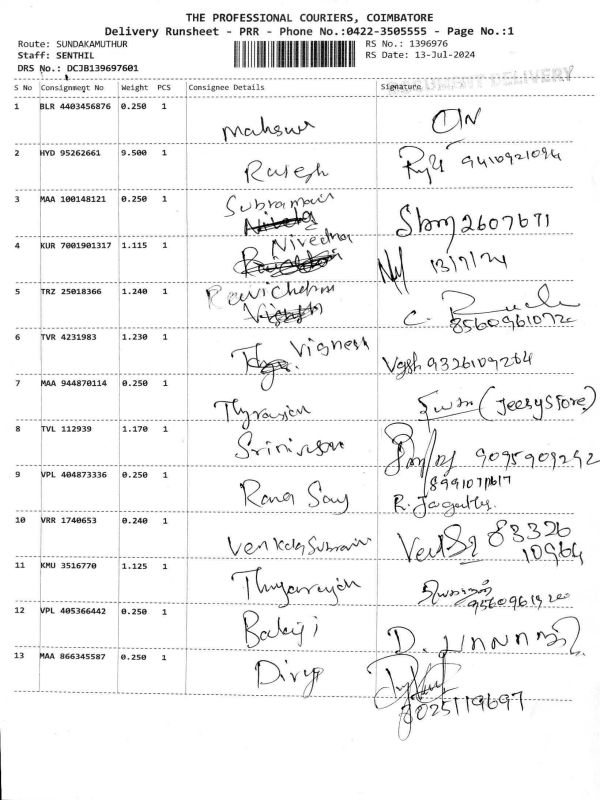 THE PROFESSIONAL COURIERS, COIMBATORE
Delivery Runsheet - PRR - Phone No.:0422-3505555 - Page No.:1
Route: SUNDAKAMUTHUR RS No.: 1396976
Staff: SENTHIL RS Date: 13-Jul-2024
DRS No.: DCJB139697601
DOCUMENT DELIVERY
S No Consignment No Weight PCS Consignee Details Signature
1 BLR 4403456876 0.250 1
2 HYD 95262661 9.500 1 Rajesh 9410921094
3 MAA 100148121 0.250 1 Subramani 2607671
4 KUR 7001901317 1.115 1 Nivedha 13/7/24
5 TRZ 25018366 1.240 1 C.
6 TVR 4231983 1.230 1 Vignesh 9326109264
7 MAA 944870114 0.250 1 (Jeesy Store)
8 TVL 112939 1.170 1 Srinivasan 9095909292
9 VPL 404873336 0.250 1 R.
10 VRR 1740653 0.240 1 83326
10964
11 KMU 3516770 1.125 1
12 VPL 405366442 0.250 1 Balaji D. பாலாஜி
13 MAA 866345587 0.250 1 Divya
8025119697